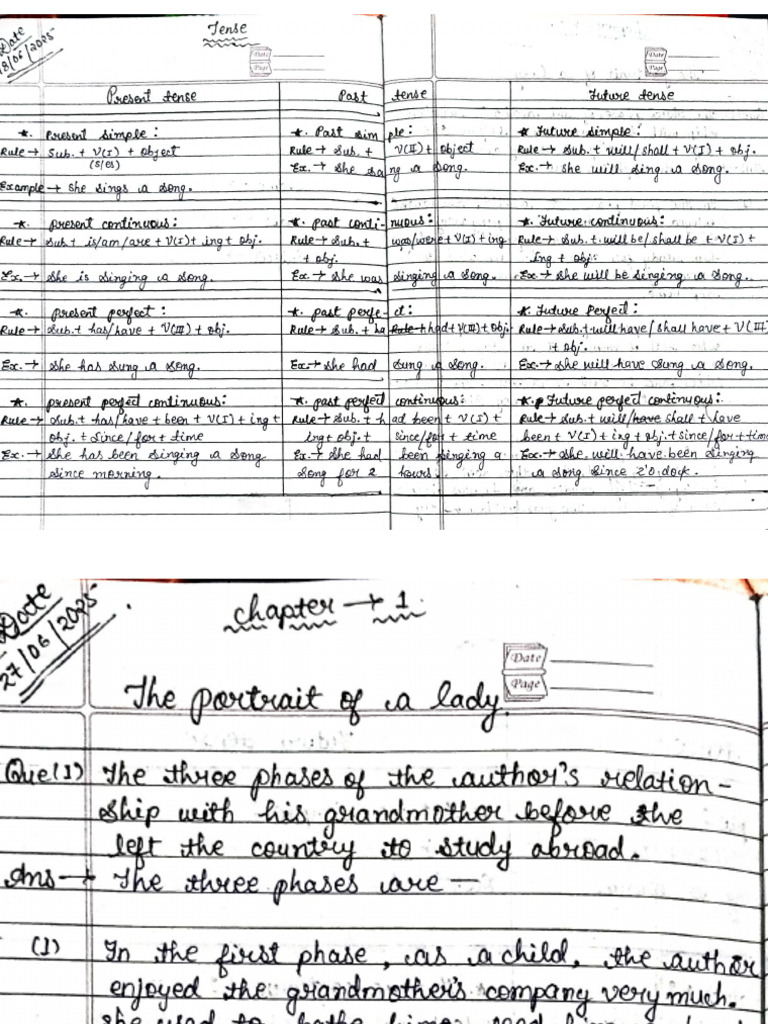 Date
18/06/2025
Tense
Date
Page
Date
Page
Present tense
Past tense
Future tense
*. Present simple:
Rule→ Sub. + V(I) + object
(s/es)
Example→ She sings a song.
*. Past simple:
Rule→ Sub. + V(II) + object
Ex.→ She sang a song.
* Future simple:
Rule→ Sub. + will/shall + V(I) + obj.
Ex.→ She will sing a song.
*. present continuous:
Rule→ Sub.+ is/am/are + V(I) + ing + obj.
Ex.→ She is singing a song.
*. past continuous:
Rule→ Sub. + was/were + V(I) + ing
+ obj.
Ex→ She was singing a song.
*. Future continuous:
Rule→ Sub. + will be/shall be + V(I) +
ing + obj.
Ex→ She will be singing a song.
*. present perfect:
Rule→ Sub.+ has/have + V(III) + obj.
Ex.→ She has sung a song.
*. past perfect:
Rule→ Sub. + had + V(III) + obj.
Ex→ She had sung a song.
*. Future Perfect:
Rule→ Sub.+ will have/shall have + V(III)
+ obj.
Ex.→ She will have sung a song.
*. present perfect continuous:
Rule→ Sub.+ has/have + been + V(I) + ing +
obj. + since/for + time
Ex.→ She has been singing a song
since morning.
*. past perfect continuous:
Rule→ Sub. + had been + V(I) +
ing + obj. + since/for + time
Ex.→ She had been singing a
song for 2 hours.
*. Future perfect continuous:
Rule→ Sub.+ will/have shall + have
been + V(I) + ing + obj. + since/for + time
Ex.→ She will have been singing
a song since 2'0 clock.
Date
27/06/2025
Chapter → 1.
Date
Page
The portrait of a lady.
Que(1) The three phases of the author's relation-
ship with his grandmother before the
left the country to study abroad.
Ans → The three phases are —
(1) In the first phase, as a child, the author
enjoyed the grandmother's company very much.
she used to bathe him, read him